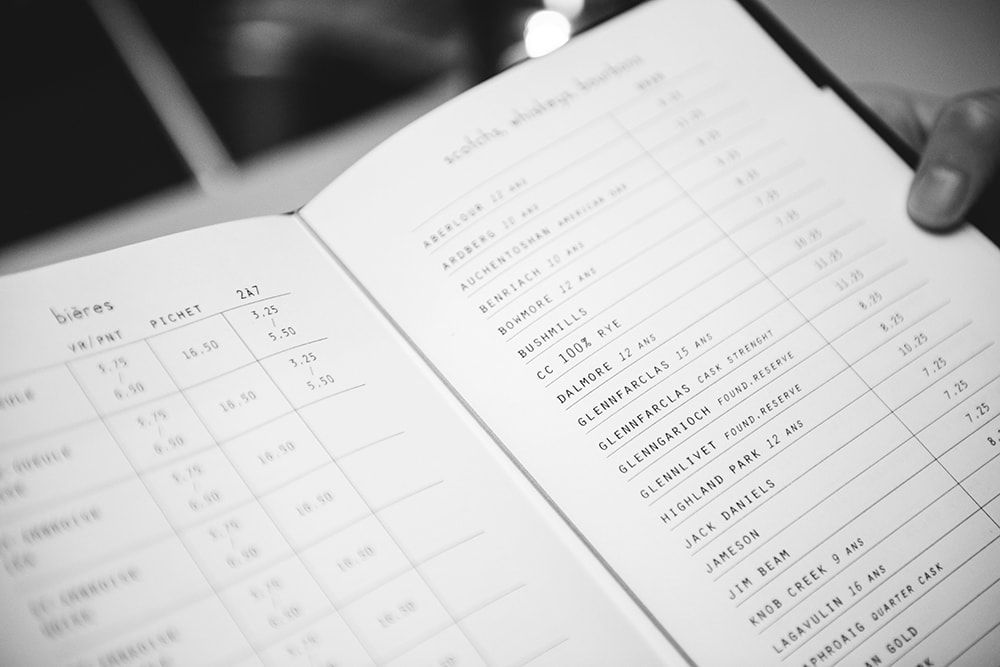 bières
VR/PNT PICHET 2À7
5.75 16.50 3.25
6.50 5.50
GUEULE 5.75 16.50 3.25
6.50 5.50
5.75 16.50
6.50
5.75 16.50
6.50
5.75 16.50
6.50
16.50
scotchs, whiskeys, bourbons
ABERLOUR 12 ANS
ARDBERG 10 ANS
AUCHENTOSHAN AMERICAN OAK
BENRIACH 10 ANS
BOWMORE 12 ANS
BUSHMILLS 7.25
CC 100% RYE 7.25
DALMORE 12 ANS 10.25
GLENNFARCLAS 15 ANS 11.25
GLENNFARCLAS CASK STRENGHT 11.25
GLENNGARIOCH FOUND.RESERVE 8.25
GLENNLIVET FOUND.RESERVE 8.25
HIGHLAND PARK 12 ANS 10.25
JACK DANIELS 7.25
JAMESON 7.25
JIM BEAM 7.25
KNOB CREEK 9 ANS 8.
LAGAVULIN 16 ANS
APHROAIG QUARTER CASK
AN GOLD